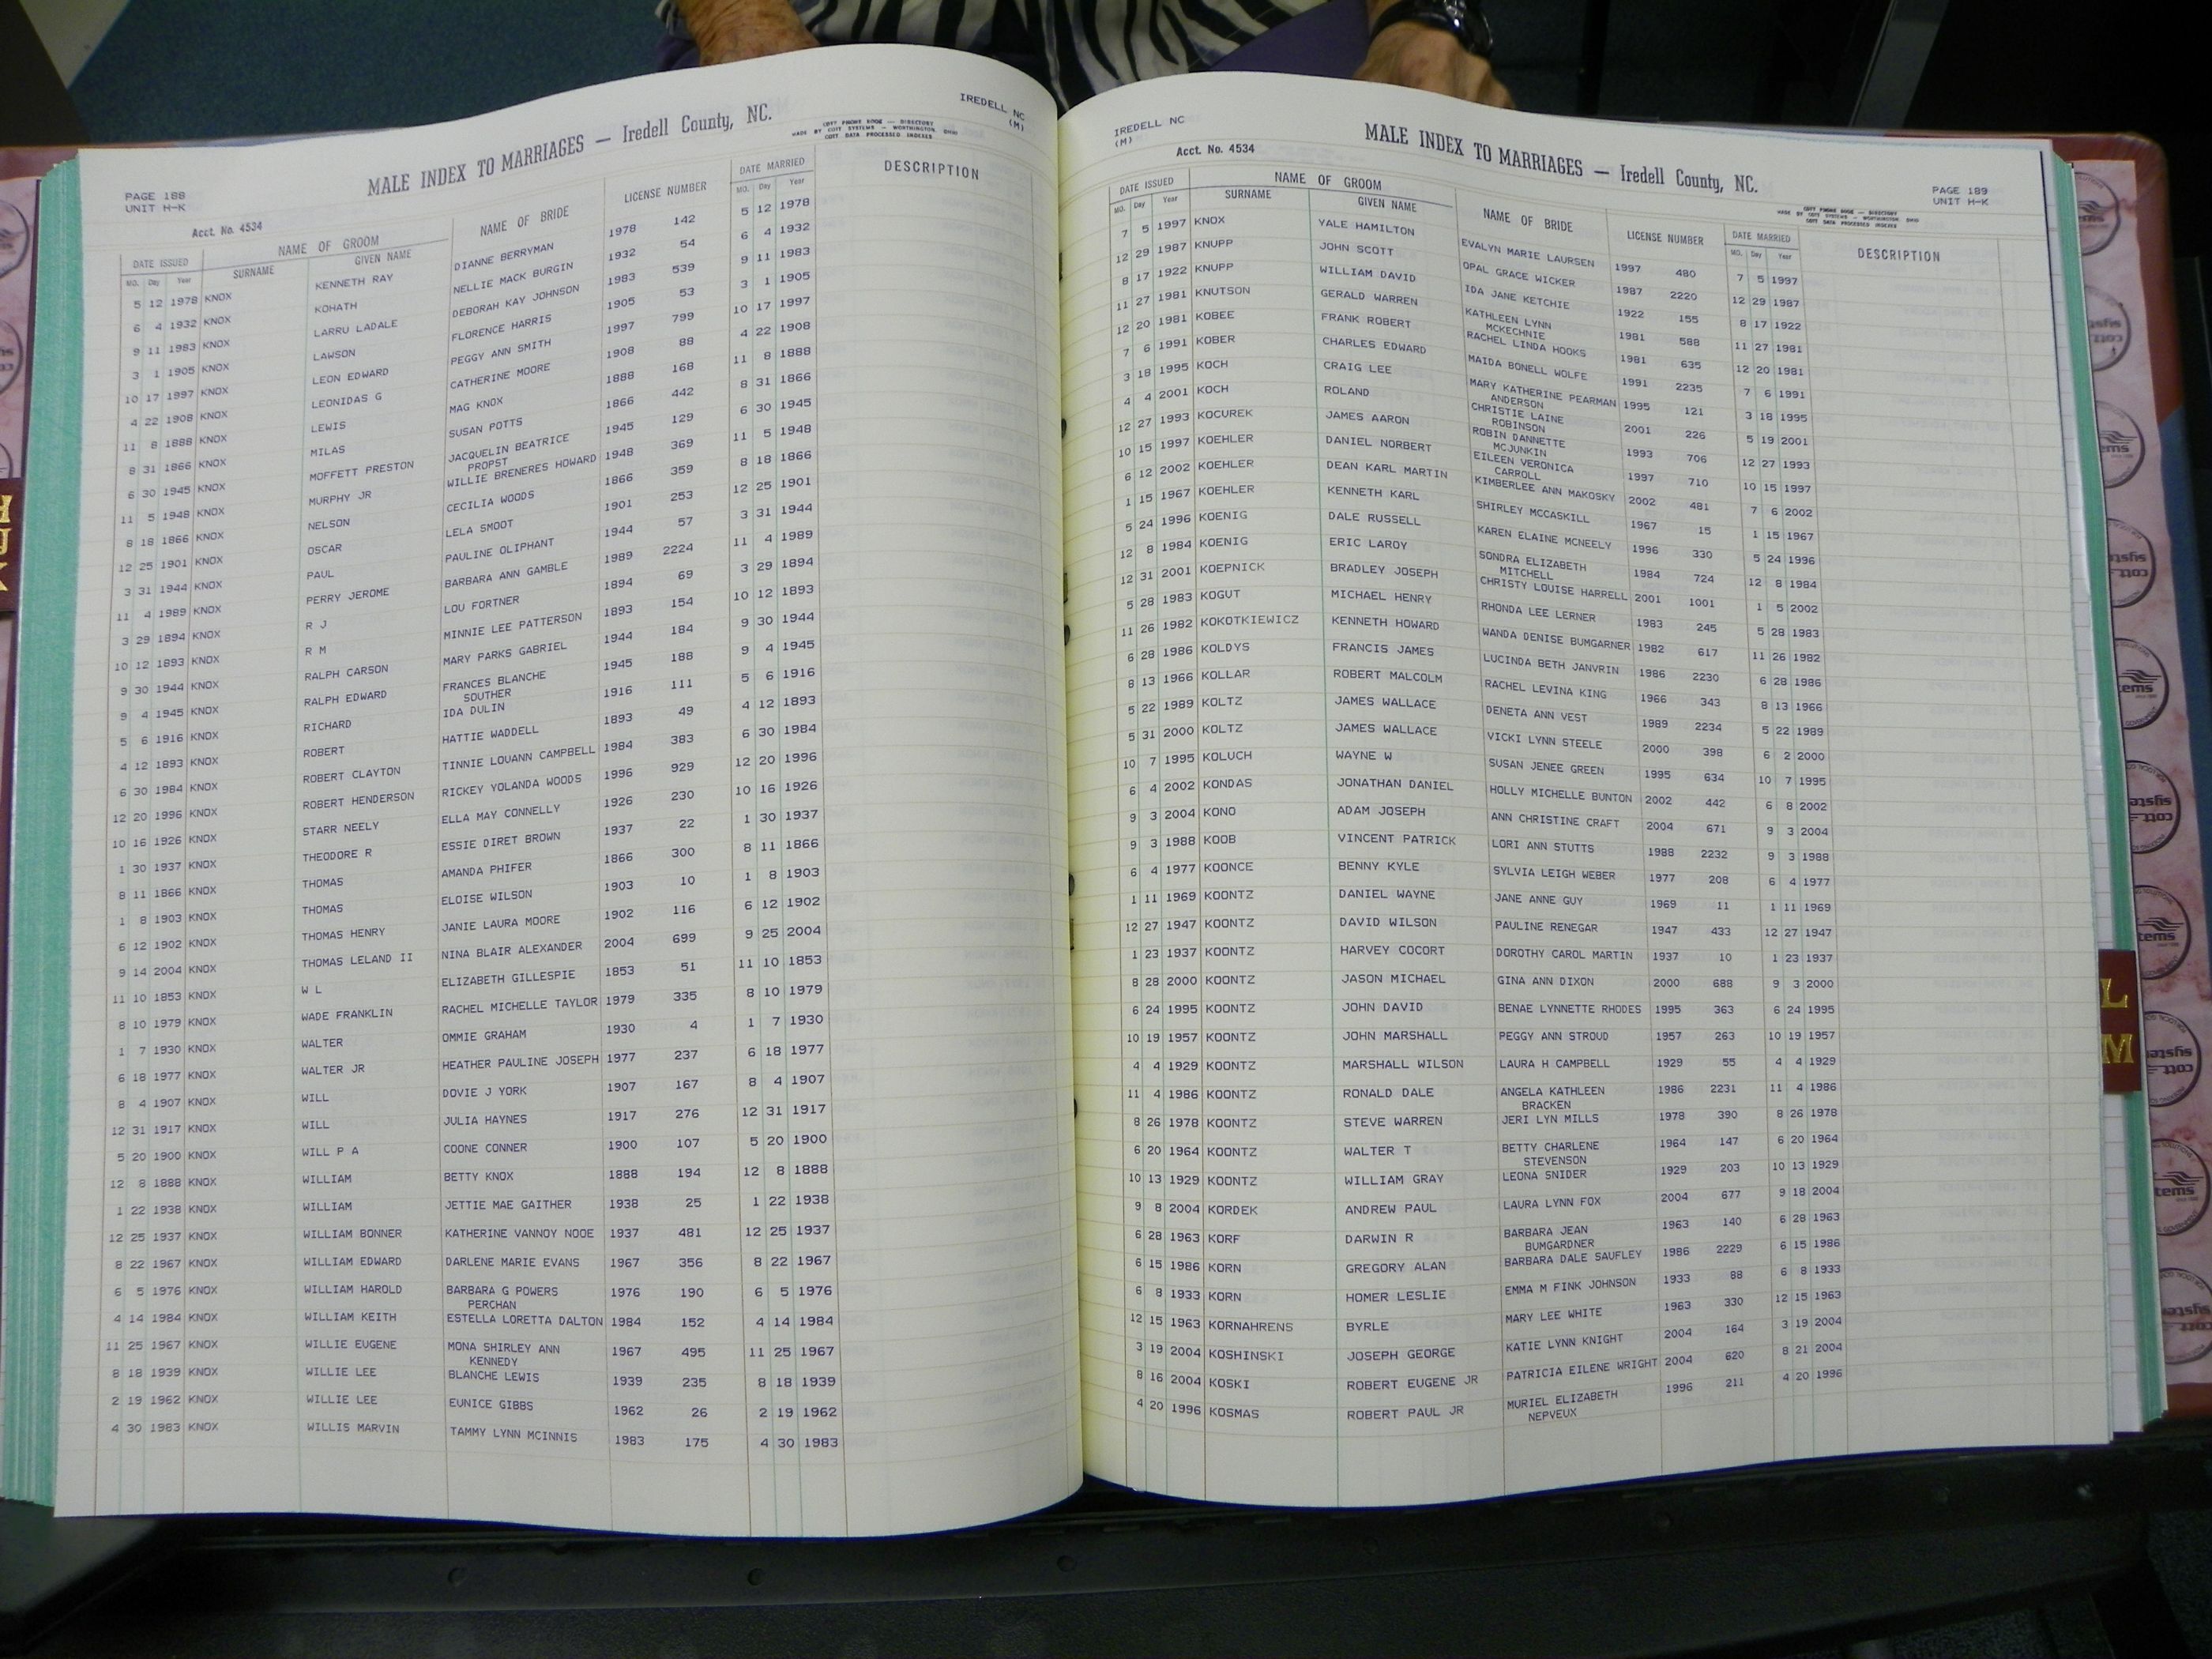 PAGE 188
UNIT H-K
MALE INDEX TO MARRIAGES — Iredell County, NC.
COTT PHONE BOOK — DIRECTORY
MADE BY COTT SYSTEMS — WORTHINGTON, OHIO
COTT DATA PROCESSED INDEXES
IREDELL NC
(M)
Acct. No. 4534
DATE ISSUED NAME OF GROOM NAME OF BRIDE LICENSE NUMBER DATE MARRIED DESCRIPTION
MO. Day Year SURNAME GIVEN NAME MO. Day Year
5 12 1978 KNOX KENNETH RAY DIANNE BERRYMAN 1978 142 5 12 1978
6 4 1932 KNOX KOHATH NELLIE MACK BURGIN 1932 54 6 4 1932
9 11 1983 KNOX LARRU LADALE DEBORAH KAY JOHNSON 1983 539 9 11 1983
3 1 1905 KNOX LAWSON FLORENCE HARRIS 1905 53 3 1 1905
10 17 1997 KNOX LEON EDWARD PEGGY ANN SMITH 1997 799 10 17 1997
4 22 1908 KNOX LEONIDAS G CATHERINE MOORE 1908 88 4 22 1908
11 8 1888 KNOX LEWIS MAG KNOX 1888 168 11 8 1888
8 31 1866 KNOX MILAS SUSAN POTTS 1866 442 8 31 1866
6 30 1945 KNOX MOFFETT PRESTON JACQUELIN BEATRICE 1945 129 6 30 1945
PROPST
11 5 1948 KNOX MURPHY JR WILLIE BRENERES HOWARD 1948 369 11 5 1948
8 18 1866 KNOX NELSON CECILIA WOODS 1866 359 8 18 1866
12 25 1901 KNOX OSCAR LELA SMOOT 1901 253 12 25 1901
3 31 1944 KNOX PAUL PAULINE OLIPHANT 1944 57 3 31 1944
11 4 1989 KNOX PERRY JEROME BARBARA ANN GAMBLE 1989 2224 11 4 1989
3 29 1894 KNOX R J LOU FORTNER 1894 69 3 29 1894
10 12 1893 KNOX R M MINNIE LEE PATTERSON 1893 154 10 12 1893
9 30 1944 KNOX RALPH CARSON MARY PARKS GABRIEL 1944 184 9 30 1944
9 4 1945 KNOX RALPH EDWARD FRANCES BLANCHE 1945 188 9 4 1945
SOUTHER
5 6 1916 KNOX RICHARD IDA DULIN 1916 111 5 6 1916
4 12 1893 KNOX ROBERT HATTIE WADDELL 1893 49 4 12 1893
6 30 1984 KNOX ROBERT CLAYTON TINNIE LOUANN CAMPBELL 1984 383 6 30 1984
12 20 1996 KNOX ROBERT HENDERSON RICKEY YOLANDA WOODS 1996 929 12 20 1996
10 16 1926 KNOX STARR NEELY ELLA MAY CONNELLY 1926 230 10 16 1926
1 30 1937 KNOX THEODORE R ESSIE DIRET BROWN 1937 22 1 30 1937
8 11 1866 KNOX THOMAS AMANDA PHIFER 1866 300 8 11 1866
1 8 1903 KNOX THOMAS ELOISE WILSON 1903 10 1 8 1903
6 12 1902 KNOX THOMAS HENRY JANIE LAURA MOORE 1902 116 6 12 1902
9 14 2004 KNOX THOMAS LELAND II NINA BLAIR ALEXANDER 2004 699 9 25 2004
11 10 1853 KNOX W L ELIZABETH GILLESPIE 1853 51 11 10 1853
8 10 1979 KNOX WADE FRANKLIN RACHEL MICHELLE TAYLOR 1979 335 8 10 1979
1 7 1930 KNOX WALTER OMMIE GRAHAM 1930 4 1 7 1930
6 18 1977 KNOX WALTER JR HEATHER PAULINE JOSEPH 1977 237 6 18 1977
8 4 1907 KNOX WILL DOVIE J YORK 1907 167 8 4 1907
12 31 1917 KNOX WILL JULIA HAYNES 1917 276 12 31 1917
5 20 1900 KNOX WILL P A COONE CONNER 1900 107 5 20 1900
12 8 1888 KNOX WILLIAM BETTY KNOX 1888 194 12 8 1888
1 22 1938 KNOX WILLIAM JETTIE MAE GAITHER 1938 25 1 22 1938
12 25 1937 KNOX WILLIAM BONNER KATHERINE VANNOY NOOE 1937 481 12 25 1937
8 22 1967 KNOX WILLIAM EDWARD DARLENE MARIE EVANS 1967 356 8 22 1967
6 5 1976 KNOX WILLIAM HAROLD BARBARA G POWERS 1976 190 6 5 1976
PERCHAN
4 14 1984 KNOX WILLIAM KEITH ESTELLA LORETTA DALTON 1984 152 4 14 1984
11 25 1967 KNOX WILLIE EUGENE MONA SHIRLEY ANN 1967 495 11 25 1967
KENNEDY
8 18 1939 KNOX WILLIE LEE BLANCHE LEWIS 1939 235 8 18 1939
2 19 1962 KNOX WILLIE LEE EUNICE GIBBS 1962 26 2 19 1962
4 30 1983 KNOX WILLIS MARVIN TAMMY LYNN MCINNIS 1983 175 4 30 1983
IREDELL NC
(M)
MALE INDEX TO MARRIAGES — Iredell County, NC.
Acct. No. 4534
COTT PHONE BOOK — DIRECTORY
MADE BY COTT SYSTEMS — WORTHINGTON, OHIO
COTT DATA PROCESSED INDEXES
PAGE 189
UNIT H-K
DATE ISSUED NAME OF GROOM NAME OF BRIDE LICENSE NUMBER DATE MARRIED DESCRIPTION
MO. Day Year SURNAME GIVEN NAME MO. Day Year
7 5 1997 KNOX YALE HAMILTON EVALYN MARIE LAURSEN 1997 480 7 5 1997
12 29 1987 KNUPP JOHN SCOTT OPAL GRACE WICKER 1987 2220 12 29 1987
8 17 1922 KNUPP WILLIAM DAVID IDA JANE KETCHIE 1922 155 8 17 1922
11 27 1981 KNUTSON GERALD WARREN KATHLEEN LYNN 1981 588 11 27 1981
MCKECHNIE
12 20 1981 KOBEE FRANK ROBERT RACHEL LINDA HOOKS 1981 635 12 20 1981
7 6 1991 KOBER CHARLES EDWARD MAIDA BONELL WOLFE 1991 2235 7 6 1991
3 18 1995 KOCH CRAIG LEE MARY KATHERINE PEARMAN 1995 121 3 18 1995
ANDERSON
4 4 2001 KOCH ROLAND CHRISTIE LAINE 2001 226 5 19 2001
ROBINSON
12 27 1993 KOCUREK JAMES AARON ROBIN DANNETTE 1993 706 12 27 1993
MCJUNKIN
10 15 1997 KOEHLER DANIEL NORBERT EILEEN VERONICA 1997 710 10 15 1997
CARROLL
6 12 2002 KOEHLER DEAN KARL MARTIN KIMBERLEE ANN MAKOSKY 2002 481 7 6 2002
1 15 1967 KOEHLER KENNETH KARL SHIRLEY MCCASKILL 1967 15 1 15 1967
5 24 1996 KOENIG DALE RUSSELL KAREN ELAINE MCNEELY 1996 330 5 24 1996
12 8 1984 KOENIG ERIC LAROY SONDRA ELIZABETH 1984 724 12 8 1984
MITCHELL
12 31 2001 KOEPNICK BRADLEY JOSEPH CHRISTY LOUISE HARRELL 2001 1001 1 5 2002
5 28 1983 KOGUT MICHAEL HENRY RHONDA LEE LERNER 1983 245 5 28 1983
11 26 1982 KOKOTKIEWICZ KENNETH HOWARD WANDA DENISE BUMGARNER 1982 617 11 26 1982
6 28 1986 KOLDYS FRANCIS JAMES LUCINDA BETH JANVRIN 1986 2230 6 28 1986
8 13 1966 KOLLAR ROBERT MALCOLM RACHEL LEVINA KING 1966 343 8 13 1966
5 22 1989 KOLTZ JAMES WALLACE DENETA ANN VEST 1989 2234 5 22 1989
5 31 2000 KOLTZ JAMES WALLACE VICKI LYNN STEELE 2000 398 6 2 2000
10 7 1995 KOLUCH WAYNE W SUSAN JENEE GREEN 1995 634 10 7 1995
6 4 2002 KONDAS JONATHAN DANIEL HOLLY MICHELLE BUNTON 2002 442 6 8 2002
9 3 2004 KONO ADAM JOSEPH ANN CHRISTINE CRAFT 2004 671 9 3 2004
9 3 1988 KOOB VINCENT PATRICK LORI ANN STUTTS 1988 2232 9 3 1988
6 4 1977 KOONCE BENNY KYLE SYLVIA LEIGH WEBER 1977 208 6 4 1977
1 11 1969 KOONTZ DANIEL WAYNE JANE ANNE GUY 1969 11 1 11 1969
12 27 1947 KOONTZ DAVID WILSON PAULINE RENEGAR 1947 433 12 27 1947
1 23 1937 KOONTZ HARVEY COCORT DOROTHY CAROL MARTIN 1937 10 1 23 1937
8 28 2000 KOONTZ JASON MICHAEL GINA ANN DIXON 2000 688 9 3 2000
6 24 1995 KOONTZ JOHN DAVID BENAE LYNNETTE RHODES 1995 363 6 24 1995
10 19 1957 KOONTZ JOHN MARSHALL PEGGY ANN STROUD 1957 263 10 19 1957
4 4 1929 KOONTZ MARSHALL WILSON LAURA H CAMPBELL 1929 55 4 4 1929
11 4 1986 KOONTZ RONALD DALE ANGELA KATHLEEN 1986 2231 11 4 1986
BRACKEN
8 26 1978 KOONTZ STEVE WARREN JERI LYN MILLS 1978 390 8 26 1978
6 20 1964 KOONTZ WALTER T BETTY CHARLENE 1964 147 6 20 1964
STEVENSON
10 13 1929 KOONTZ WILLIAM GRAY LEONA SNIDER 1929 203 10 13 1929
9 8 2004 KORDEK ANDREW PAUL LAURA LYNN FOX 2004 677 9 18 2004
6 28 1963 KORF DARWIN R BARBARA JEAN 1963 140 6 28 1963
BUMGARDNER
6 15 1986 KORN GREGORY ALAN BARBARA DALE SAUFLEY 1986 2229 6 15 1986
6 8 1933 KORN HOMER LESLIE EMMA M FINK JOHNSON 1933 88 6 8 1933
12 15 1963 KORNAHRENS BYRLE MARY LEE WHITE 1963 330 12 15 1963
3 19 2004 KOSHINSKI JOSEPH GEORGE KATIE LYNN KNIGHT 2004 164 3 19 2004
8 16 2004 KOSKI ROBERT EUGENE JR PATRICIA EILENE WRIGHT 2004 620 8 21 2004
4 20 1996 KOSMAS ROBERT PAUL JR MURIEL ELIZABETH 1996 211 4 20 1996
NEPVEUX
L
M